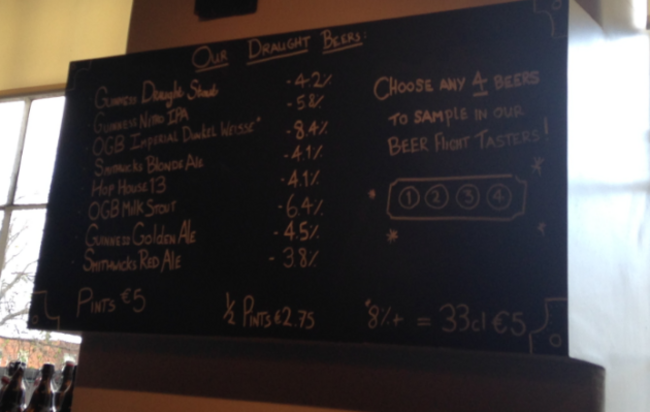 OUR DRAUGHT BEERS:
GUINNESS Draught Stout - 4.2%
GUINNESS NITRO IPA - 5.8%
OGB IMPERIAL DUNKEL WEISSE* - 8.4%
SMITHWICKS BLONDE ALE - 4.1%
HOP HOUSE 13 - 4.1%
OGB MILK STOUT - 6.4%
GUINNESS GOLDEN ALE - 4.5%
SMITHWICKS RED ALE - 3.8%
PINTS €5
1/2 PINTS €2.75
*8%+ = 33cl €5
CHOOSE ANY 4 BEERS
TO SAMPLE IN OUR
BEER FLIGHT TASTERS!
1 2 3 4